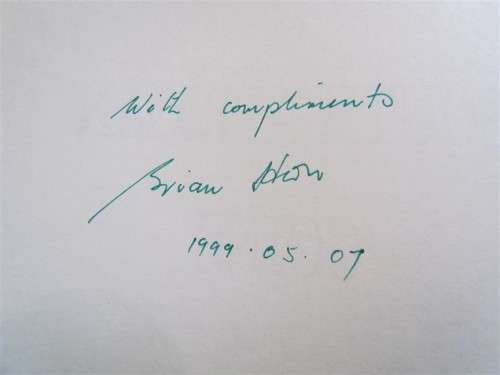 With compliments
Brian
1999.05.07